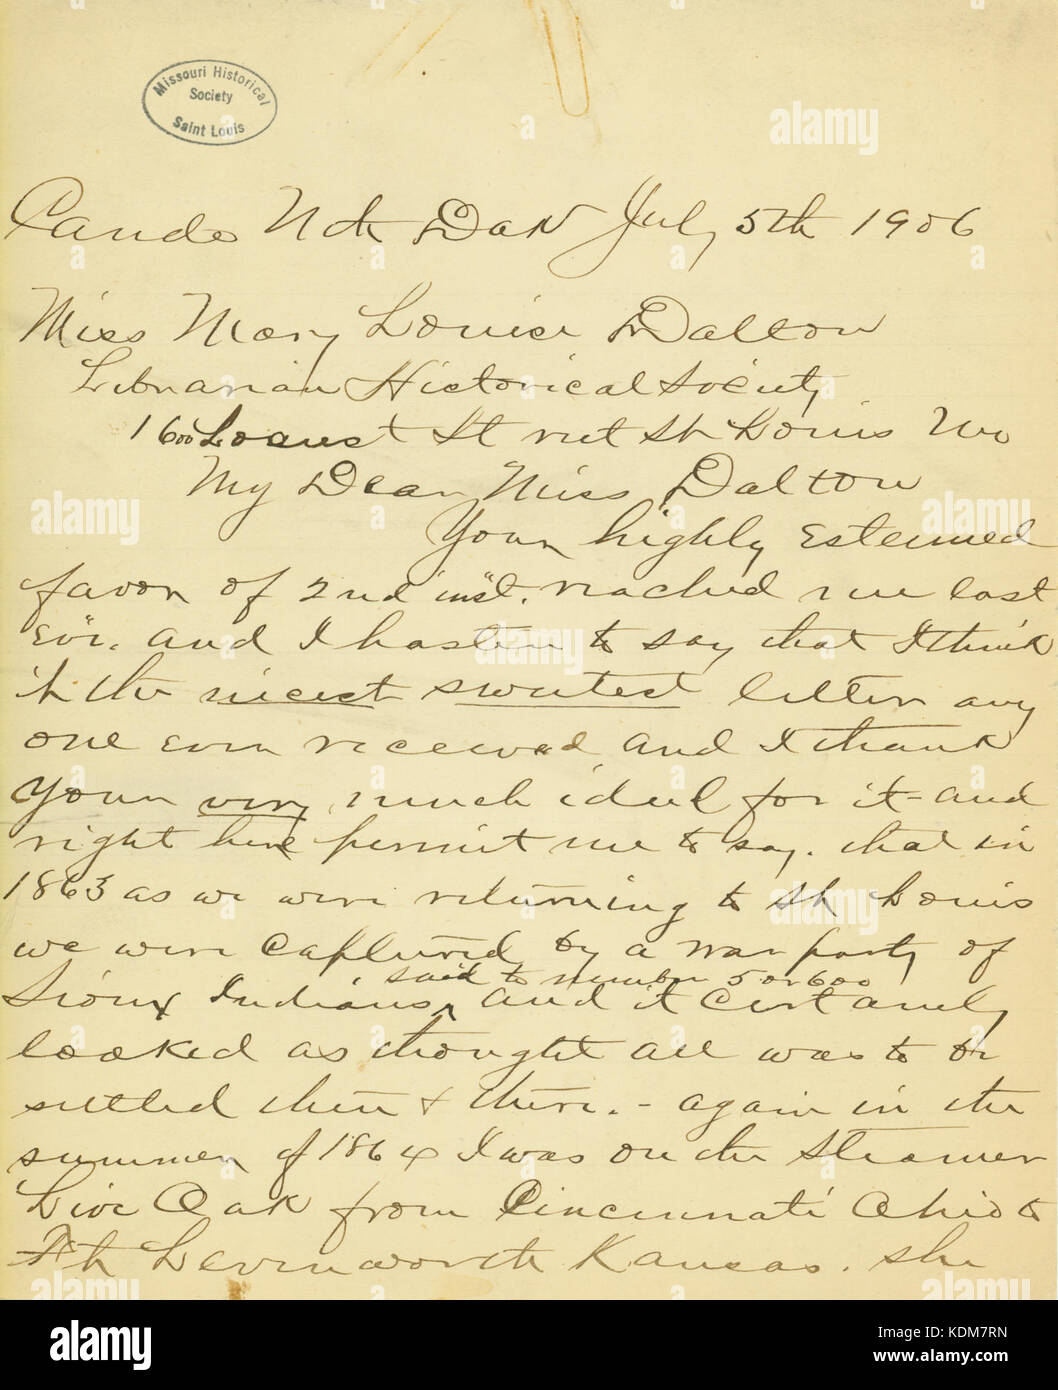 Missouri Historical
Society
Saint Louis
Cando Nth Dak July 5th 1906
Miss Mary Louise Dalton
Librarian Historical Society
1600 Locust St St Louis Mo
My Dear Miss Dalton
Your highly esteemed
favor of 2nd inst. reached me last
Eve. and I hasten to say that I think
it the nicest sweetest letter any
one ever received, and I thank
you very much ideed for it - and
right here permit me to say. that in
1863 as we were returning to St Louis
we were captured by a war party of
said to number 5 or 600
Sioux Indians, and it certanly
looked as though all was to be
settled then & there. - again in the
summer of 1864 I was on the Steamer
Live Oak from Cincinnati Ohio to
Ft Levenworth Kansas. She
alamy
a
alamy stock photo
KDM7RN
www.alamy.com